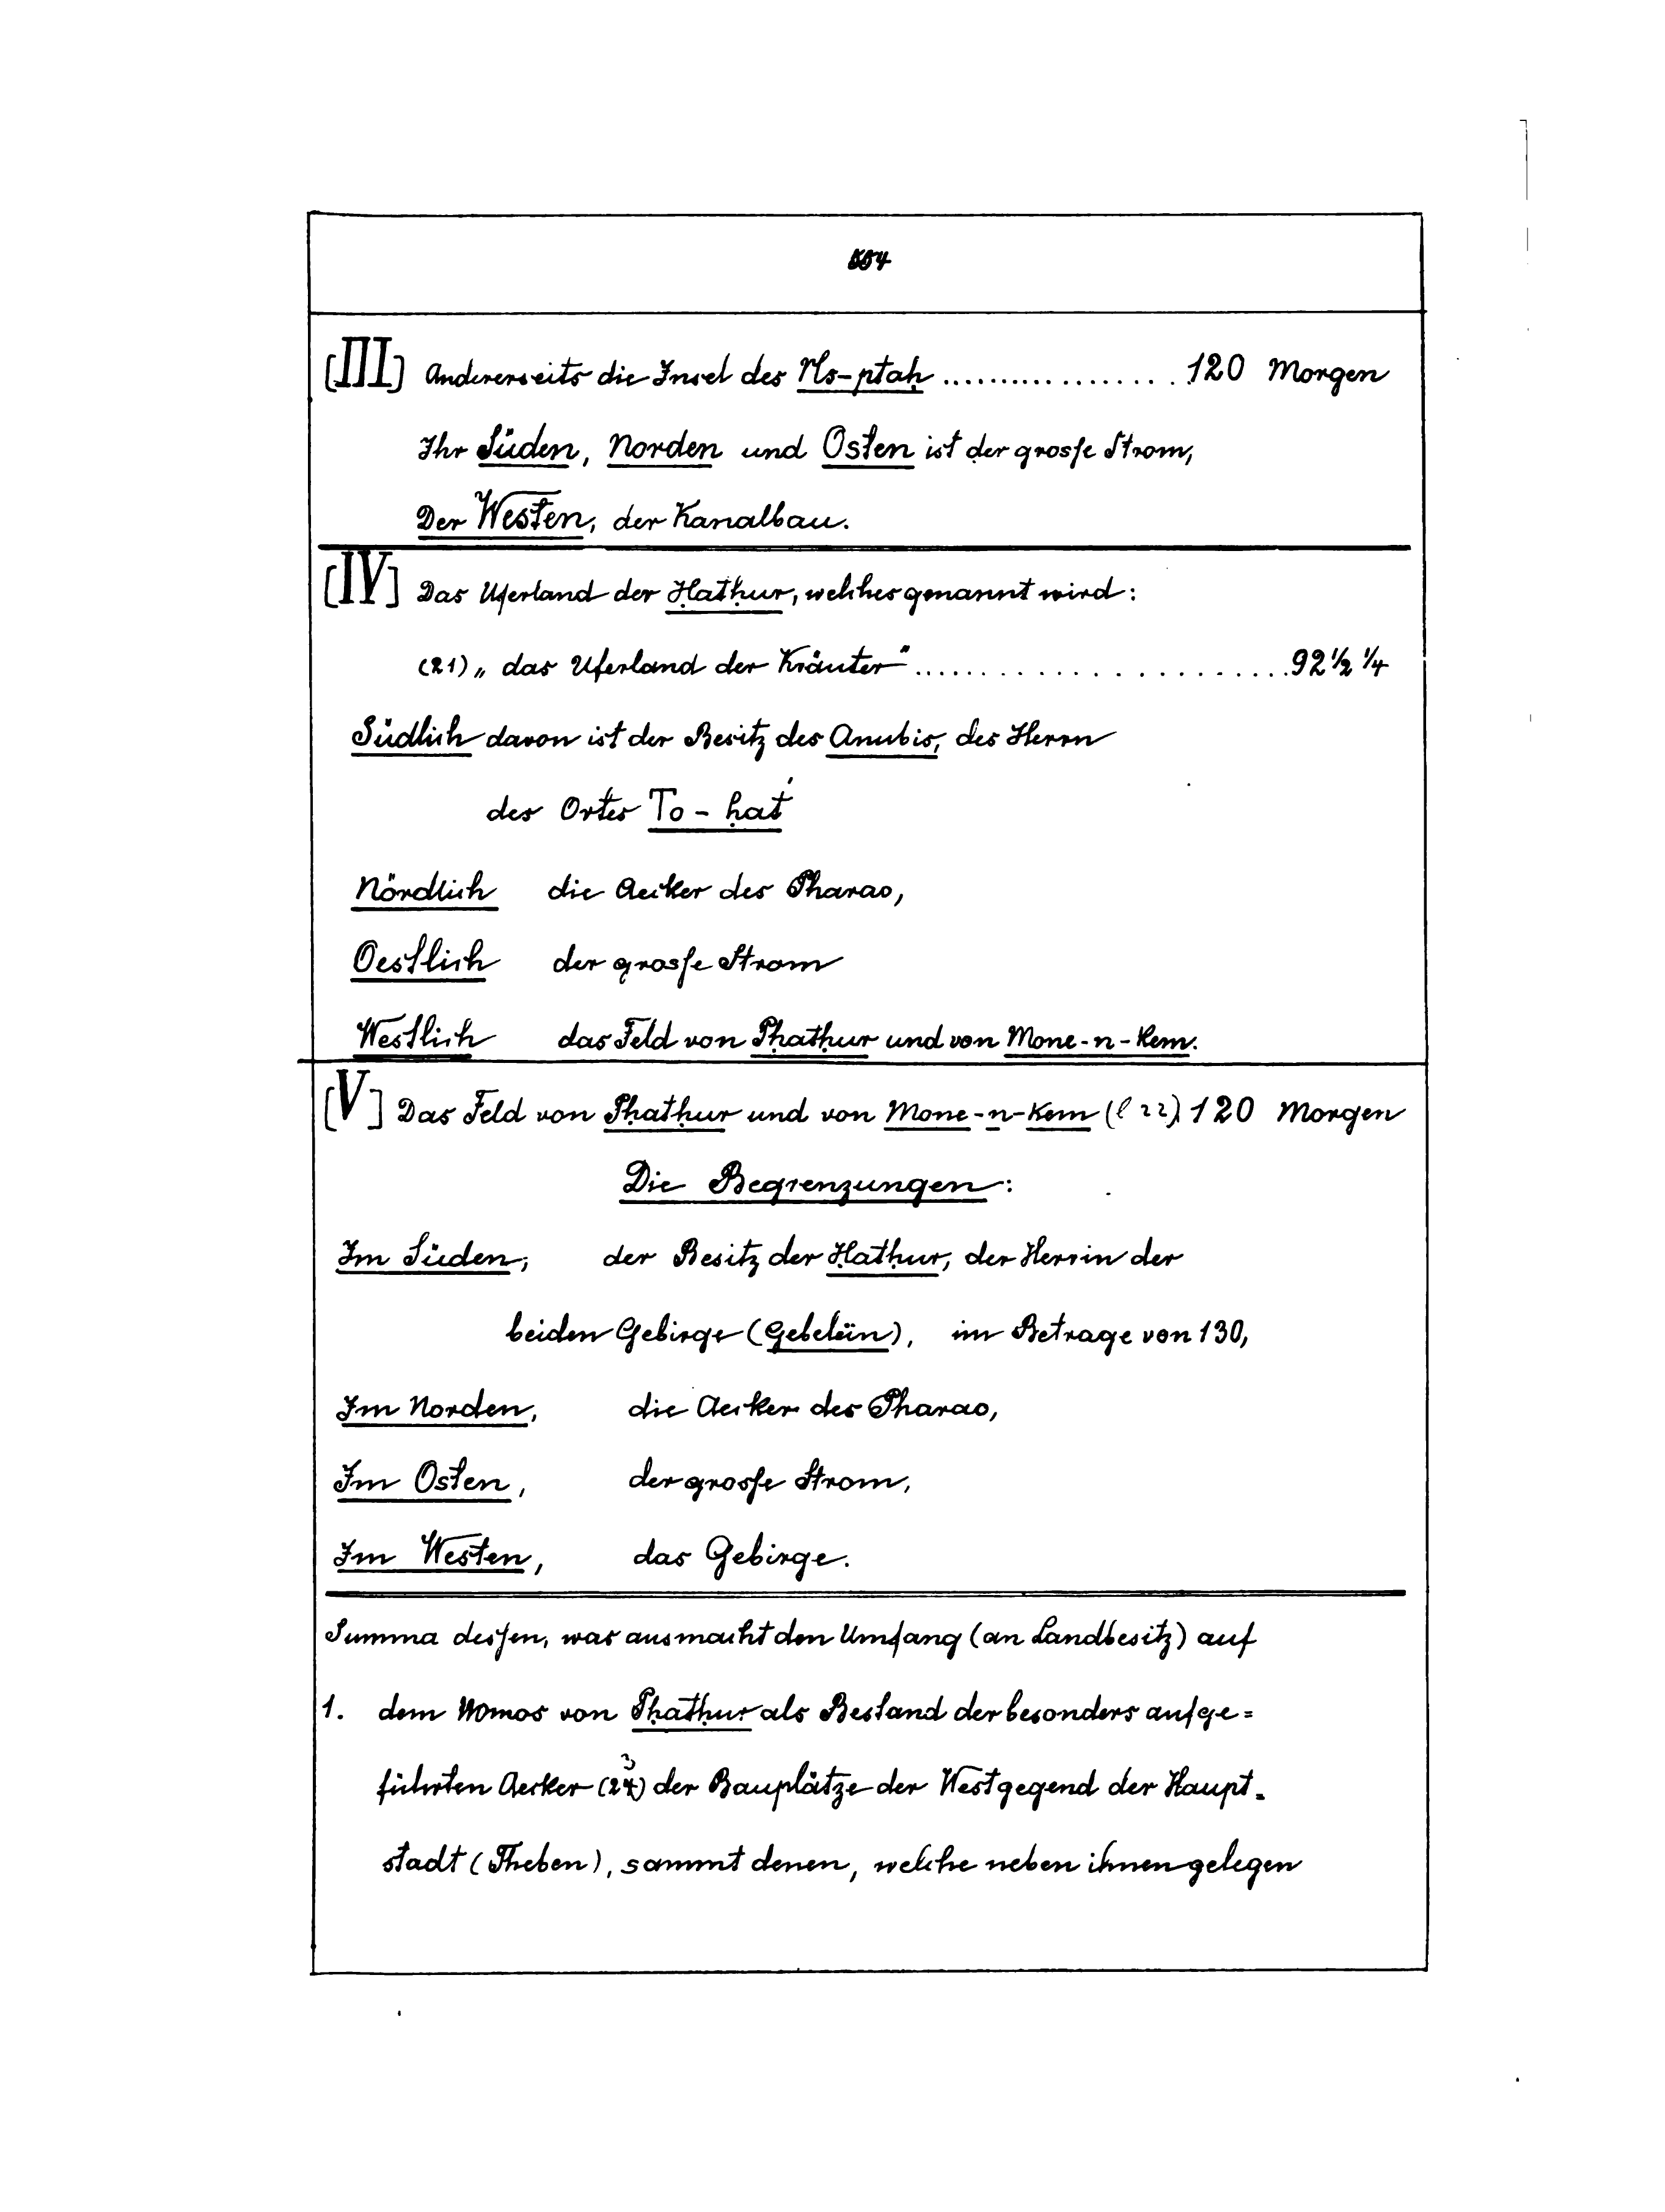 554
[III] Andererseits die Insel des Ns-ptaḥ .................. 120 Morgen
Ihr Süden, Norden und Osten ist der grosse Strom,
Der Westen, der Kanalbau.
[IV] Das Uferland der Ḥatḥur, welches genannt wird:
(21) „das Uferland der Kräuter“ ........................ 92 ½ ¼
Südlich davon ist der Besitz des Anubis, des Herrn
des Ortes To-ḥat́
Nördlich die Aecker des Pharao,
Oestlich der grosse Strom
Westlich das Feld von Pḥatḥur und von Mone-n-Kem.
[V] Das Feld von Pḥatḥur und von Mone-n-Kem (l 22) 120 Morgen
Die Begrenzungen:
Im Süden, der Besitz der Ḥatḥur, der Herrin der
beiden Gebirge (Gebelëin), im Betrage von 130,
Im Norden, die Aecker des Pharao,
Im Osten, der grosse Strom,
Im Westen, das Gebirge.
Summa dessen, was ausmacht den Umfang (an Landbesitz) auf
1. dem Nomos von Pḥatḥur als Bestand der besonders aufge=
führten Aecker (23) der Bauplätze der Westgegend der Haupt=
stadt (Theben), sammt denen, welche neben ihnen gelegen